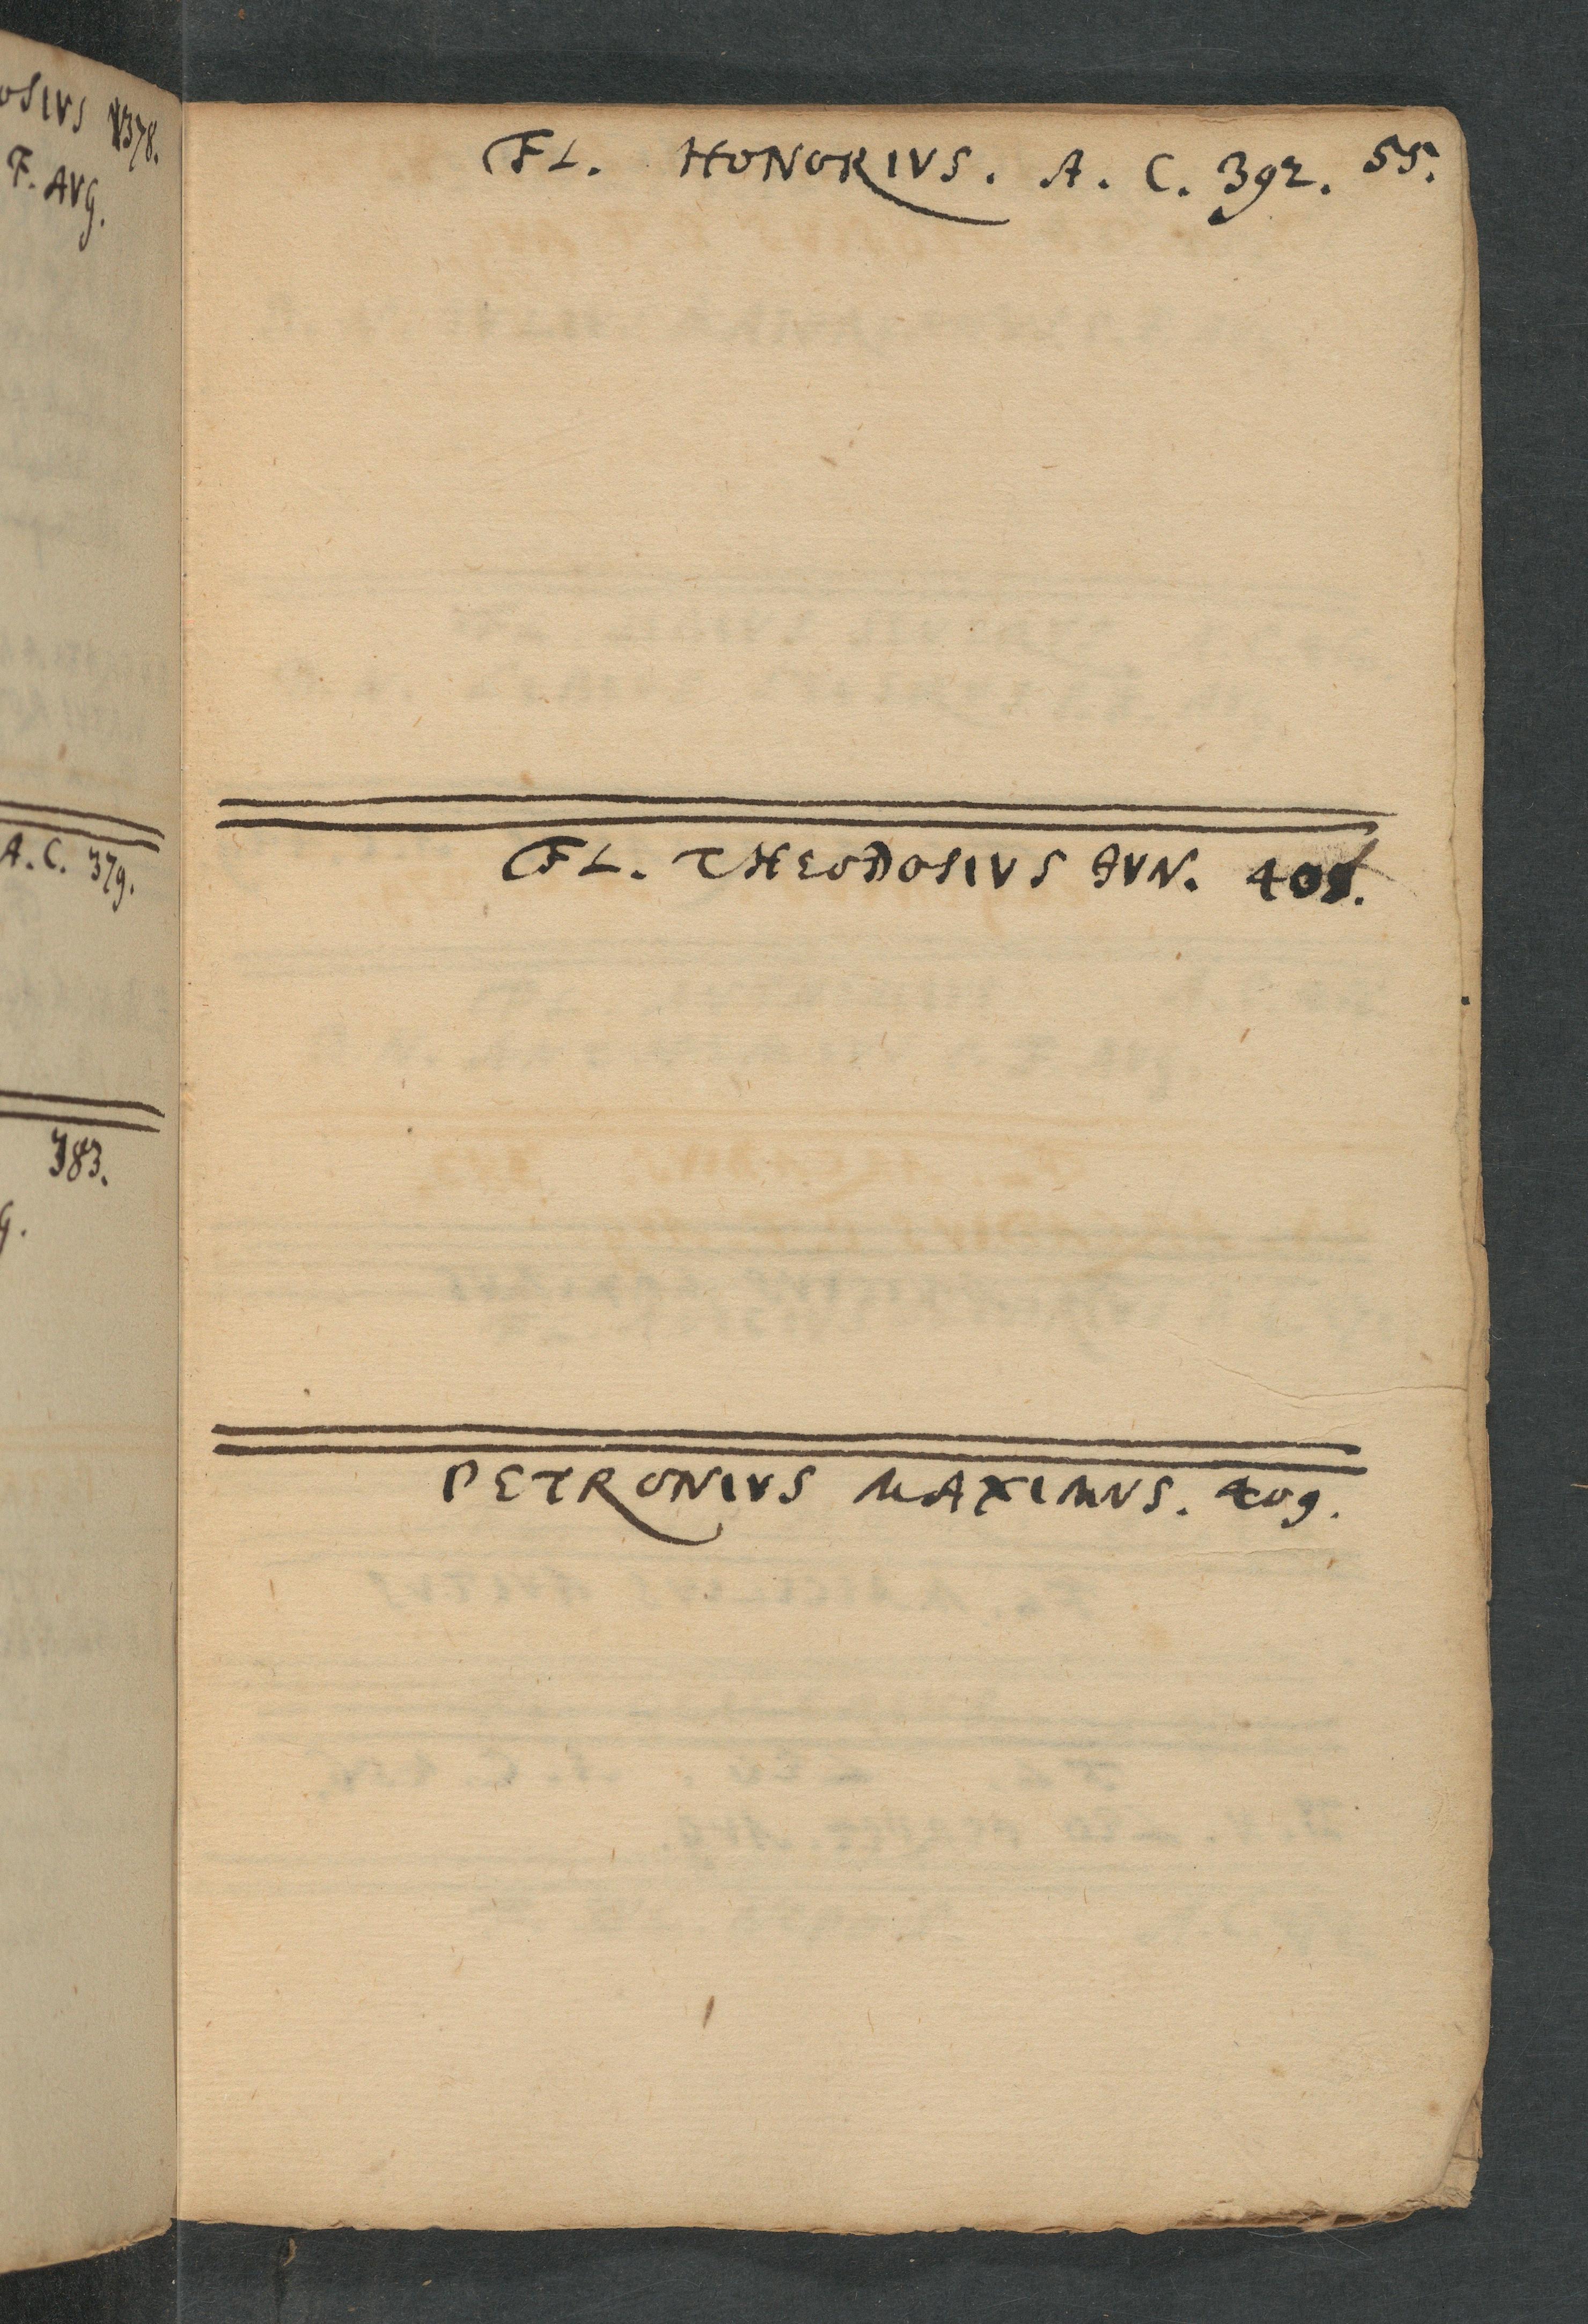 OSIVS 378.
F. AVG.
A. C. 379.
383.
g.
FL. HONORIVS. A. C. 392. 55.
FL. THEODOSIVS IVN.
PETRONIVS MAXIMVS. 409.